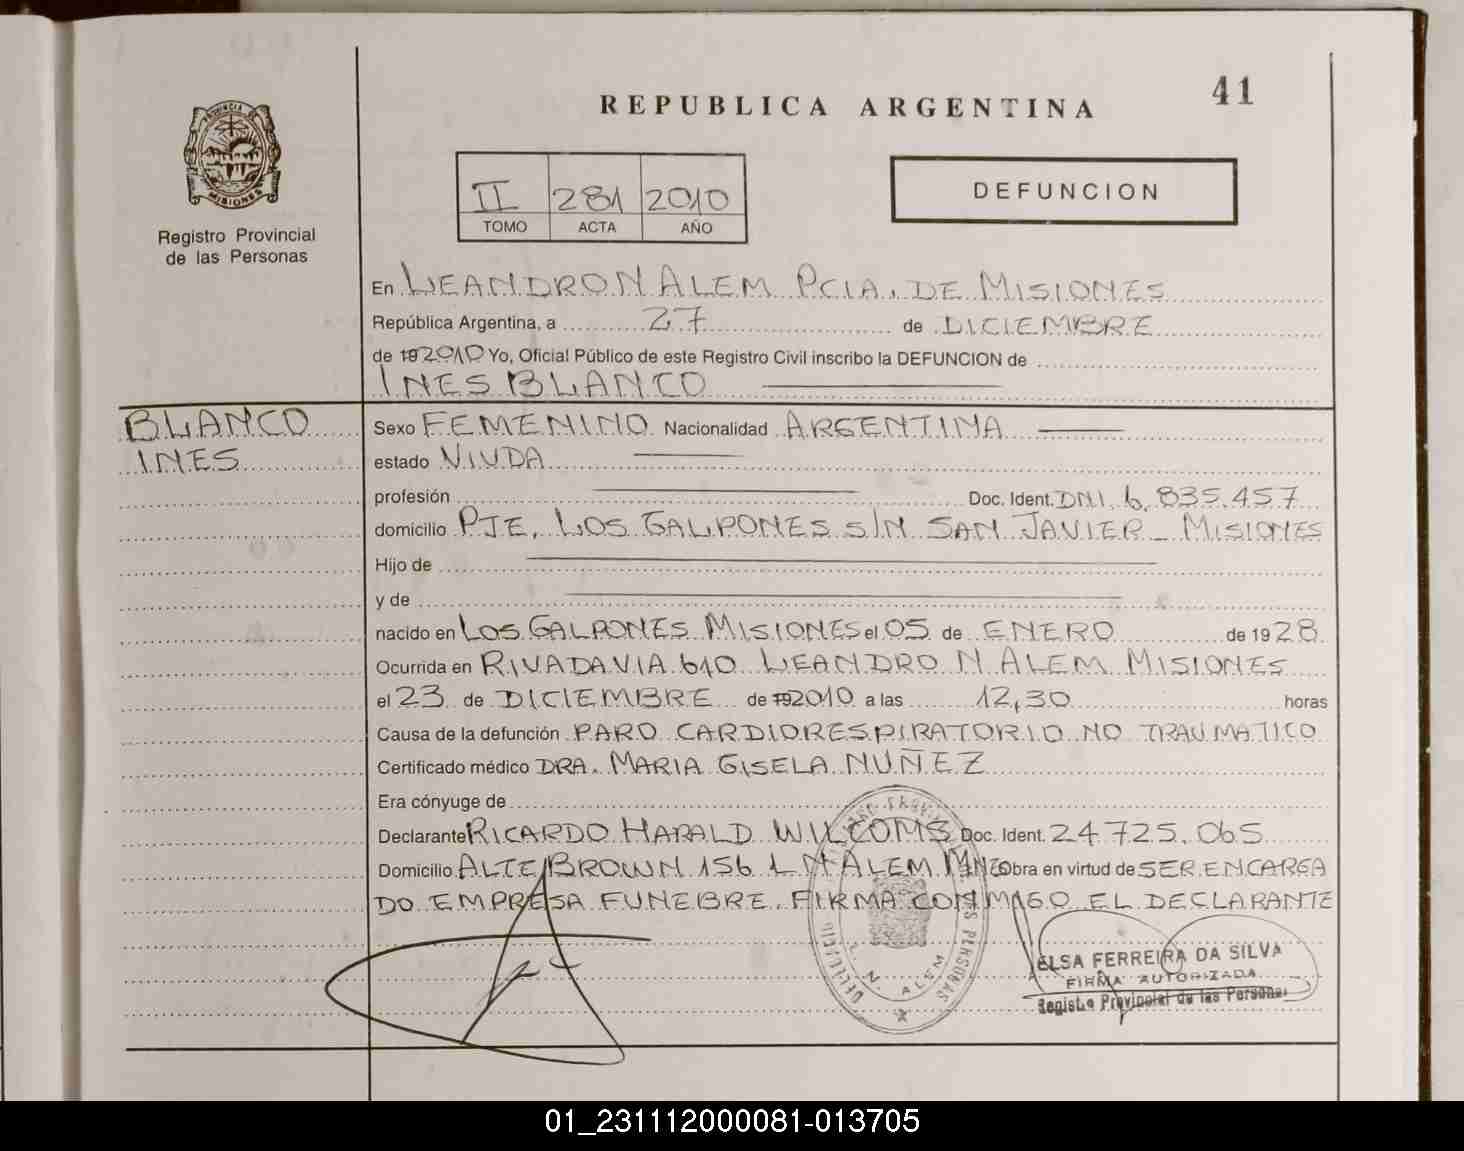 41
REPUBLICA ARGENTINA
PROVINCIA
MISIONES
Registro Provincial
de las Personas
II 281 2010
TOMO ACTA AÑO
DEFUNCION
En LEANDRO N ALEM PCIA. DE MISIONES
República Argentina, a 27 de DICIEMBRE
de 19 2010 Yo, Oficial Público de este Registro Civil inscribo la DEFUNCION de
INES BLANCO
BLANCO
INES
Sexo FEMENINO Nacionalidad ARGENTINA
estado VIUDA
profesión Doc. Ident. DNI. 6.835.457
domicilio PJE. LOS GALPONES S/N SAN JAVIER - MISIONES
Hijo de
y de
nacido en LOS GALPONES MISIONES el 05 de ENERO de 19 28
Ocurrida en RIVADAVIA 610 LEANDRO N ALEM MISIONES
el 23 de DICIEMBRE de 19 2010 a las 12,30 horas
Causa de la defunción PARO CARDIORESPIRATORIO NO TRAUMATICO
Certificado médico DRA. MARIA GISELA NUÑEZ
Era cónyuge de
Declarante RICARDO HARALD WILCOMS Doc. Ident. 24.725.065
Domicilio ALTE BROWN 156 L N ALEM MNES Obra en virtud de SER ENCARGA
DO EMPRESA FUNEBRE. FIRMA CONMIGO EL DECLARANTE
L. N. ALEM
ELSA FERREIRA DA SILVA
FIRMA AUTORIZADA
Registro Provincial de las Personas
01_231112000081-013705